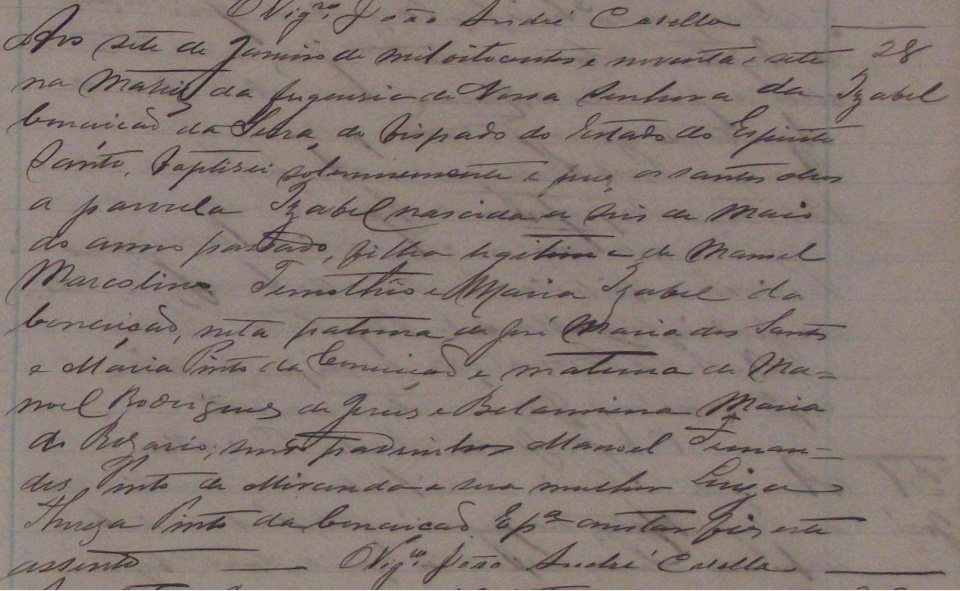 O Vigro. João André Casella
Aos sete de Janeiro de mil oitocentos e noventa e sete
28
na Matriz da freguesia de Nossa Senhora da
Izabel
Conceicão da Serra, do bispado do Estado do Espirito
Santo, baptisei solemnemente e puz os santos oleos
a parvula Izabel nascida a seis de Maio
do anno passado, filha legitima de Manoel
Marcolino Temothêo e Maria Izabel da
Conceição, neta paterna de José Maria dos Santos
e Maria Pinto da Conceicão e materna de Ma=
noel Rodrigues de Jesus e Belarmina Maria
do Rozario; padrinhos Manoel Fernan=
des Pinto de Miranda e sua mulher Luiza
Thereza Pinto da Conceicão Epa constar fiz este
assento O Vigro. João André Casella